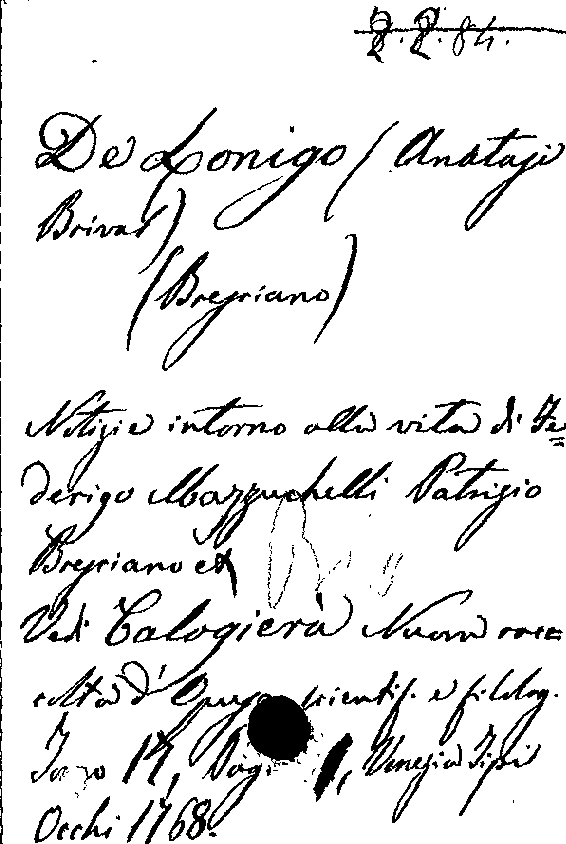 2.2.84.
De Lonigo (Anastasio
Brivas)
(Bresciano)
Notizie intorno alla vita di Fe=
derigo Mazzuchelli Patrizio
Bresciano
Vedi Calogierà Nuova rac=
colta d' scientif. e filolog.
Tomo 17, Pag. 1, Venezia Tipi
Occhi 1768.